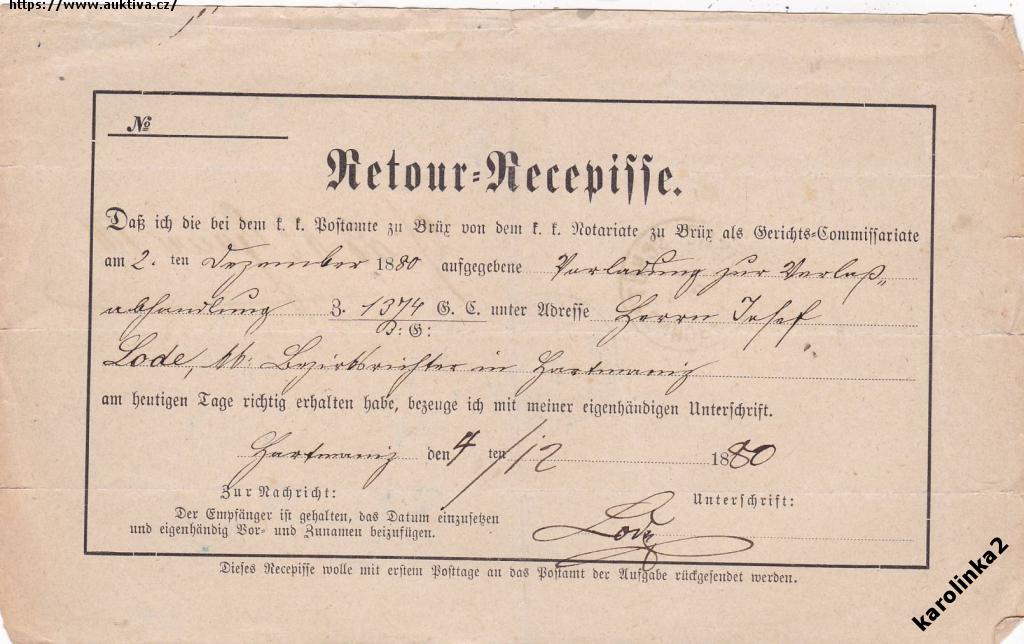 https://www.auktiva.cz/
№
Retour-Recepisse.
Daß ich die bei dem k. k. Postamte zu Brüx von dem k. k. Notariate zu Brüx als Gerichts-Commissariate
am 2. ten Dezember 1880 aufgegebene Vorladung zur Verlaß„
abhandlung Z. 1374 G. C. unter Adresse Herrn Josef
B: G:
Lode, kk: Bezirksrichter in Hartmaniz
am heutigen Tage richtig erhalten habe, bezeuge ich mit meiner eigenhändigen Unterschrift.
Hartmaniz den 4 ten /12 1880
Zur Nachricht:
Unterschrift:
Der Empfänger ist gehalten, das Datum einzusetzen
und eigenhändig Vor- und Zunamen beizufügen.
Lode
Dieses Recepisse wolle mit erstem Posttage an das Postamt der Aufgabe rückgesendet werden.
karolinka2